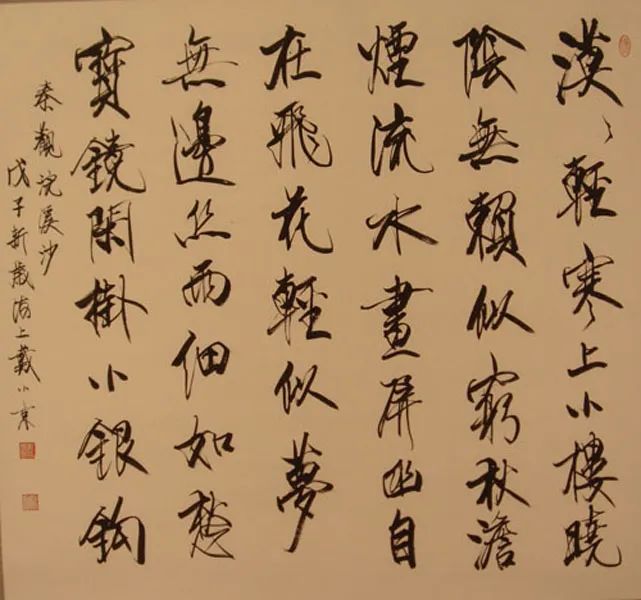 漠〻輕寒上小樓曉
陰無賴似窮秋澹
煙流水畫屏幽自
在飛花輕似夢
無邊丝雨細如愁
寶鏡閑掛小銀鈎
秦觀浣溪沙
戊子新歲海上戴小京